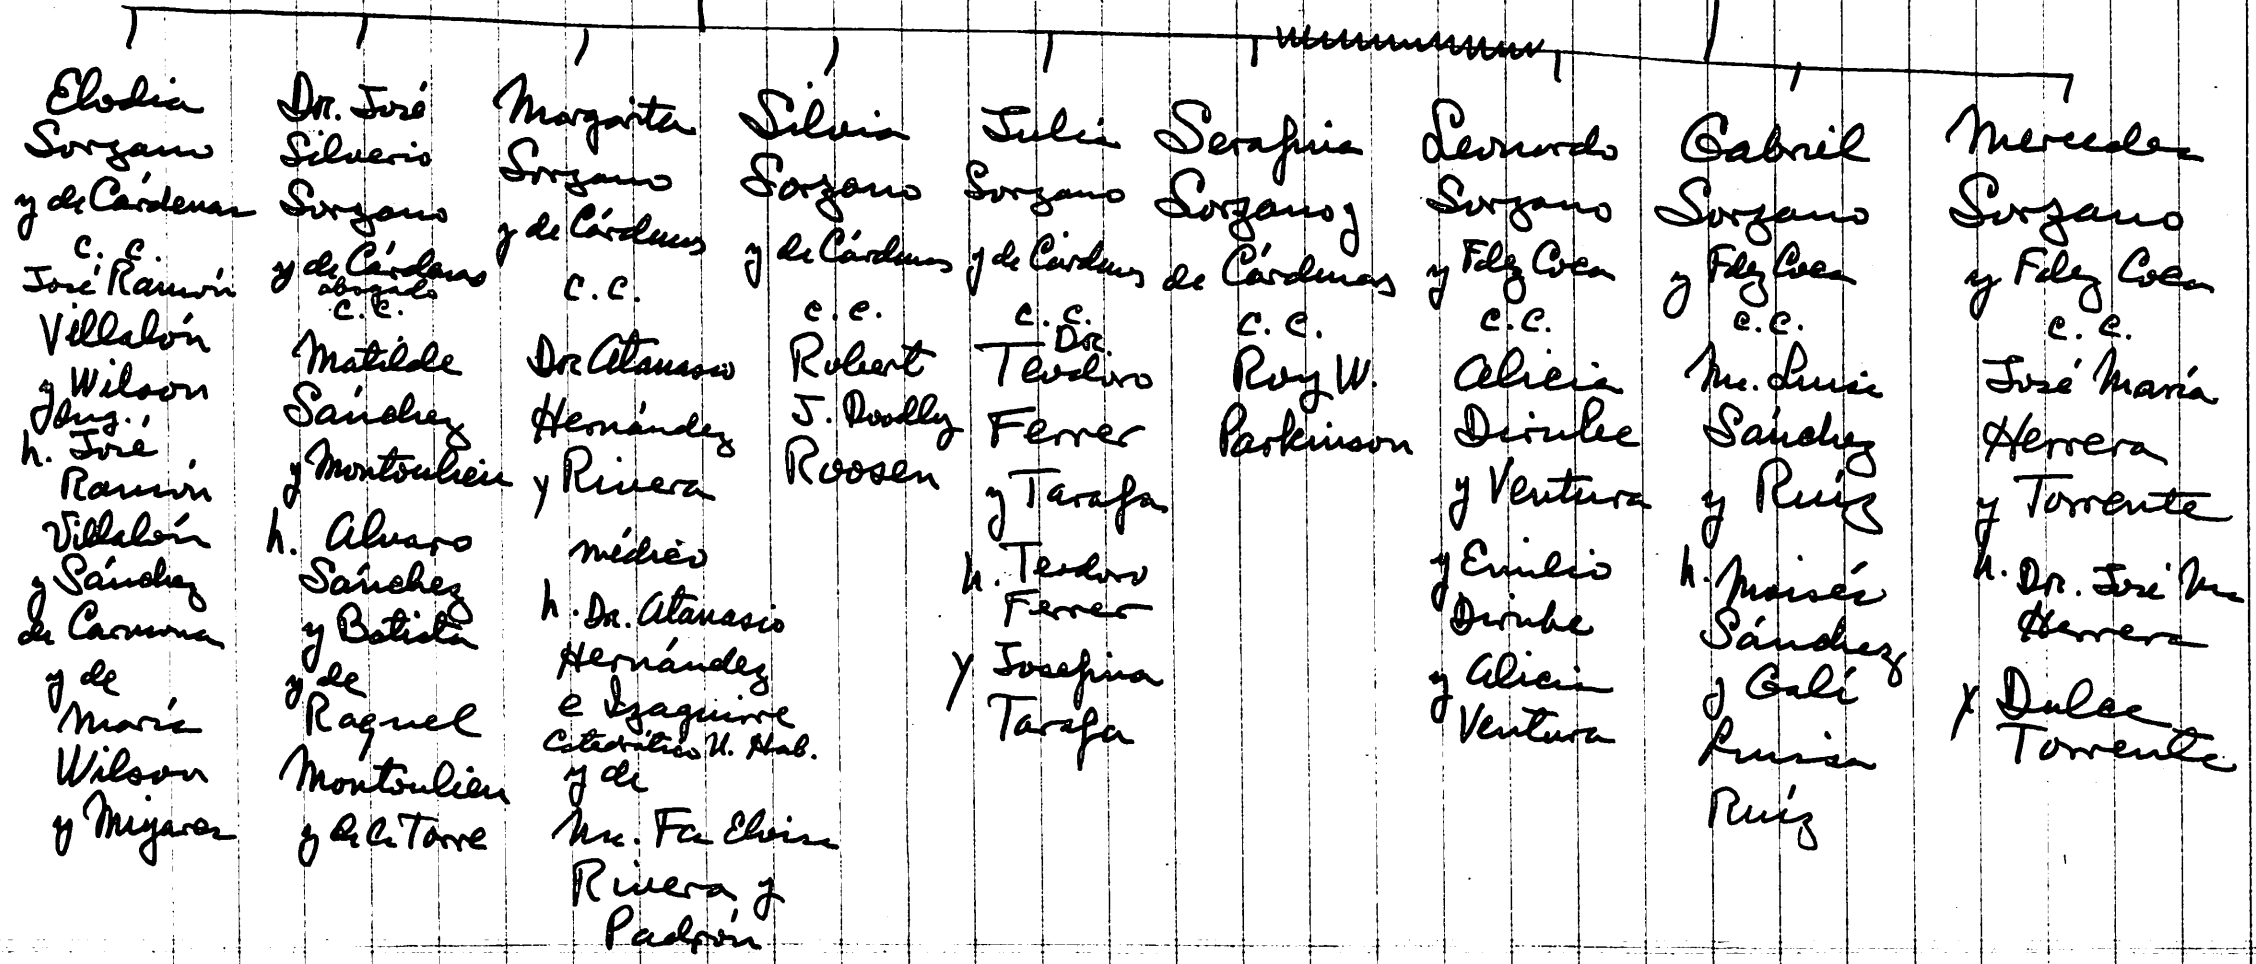 Elodia
Sorzano
y de Cárdenas
c. c.
José Ramón
Villalón
y Wilson
Ing.
h. José
Ramón
Villalón
y Sánchez
de Carmona
y de
María
Wilson
y Mijares
Dr. José
Silverio
Sorzano
y de Cárdenas
abogado
c.c.
Matilde
Sánchez
y Montoulieu
h. Alvaro
Sánchez
y Batista
y de
Raquel
Montoulieu
y de la Torre
Margarita
Sorzano
y de Cárdenas
c.c.
Dr Atanasio
Hernández
y Rivera
médico
h. Dr. Atanasio
Hernández
e Izaguirre
Catedrático U. Hab.
y de
Ma. Fca Eloisa
Rivera y
Padrón
Silvia
Sorzano
y de Cárdenas
c.c.
Robert
J. Doodly
Roosen
Julia
Sorzano
y de Cárdenas
c. c.
Dr.
Teodoro
Ferrer
y Tarafa
h. Teodoro
Ferrer
y Josefina
Tarafa
Serafina
Sorzano y
de Cárdenas
c. c.
Roy W.
Parkinson
Leonardo
Sorzano
y Fdez Coca
c.c.
Alicia
Dirube
y Ventura
y Emilio
Dirube
y Alicia
Ventura
Gabriel
Sorzano
y Fdez Coca
c.c.
Ma. Luisa
Sánchez
y Ruíz
h. Moisés
Sánchez
y Galí
Luisa
Ruíz
Mercedes
Sorzano
y Fdez Coca
c. c.
José María
Herrera
y Torrente
h. Dr. José Ma
Herrera
y Dulce
Torrente